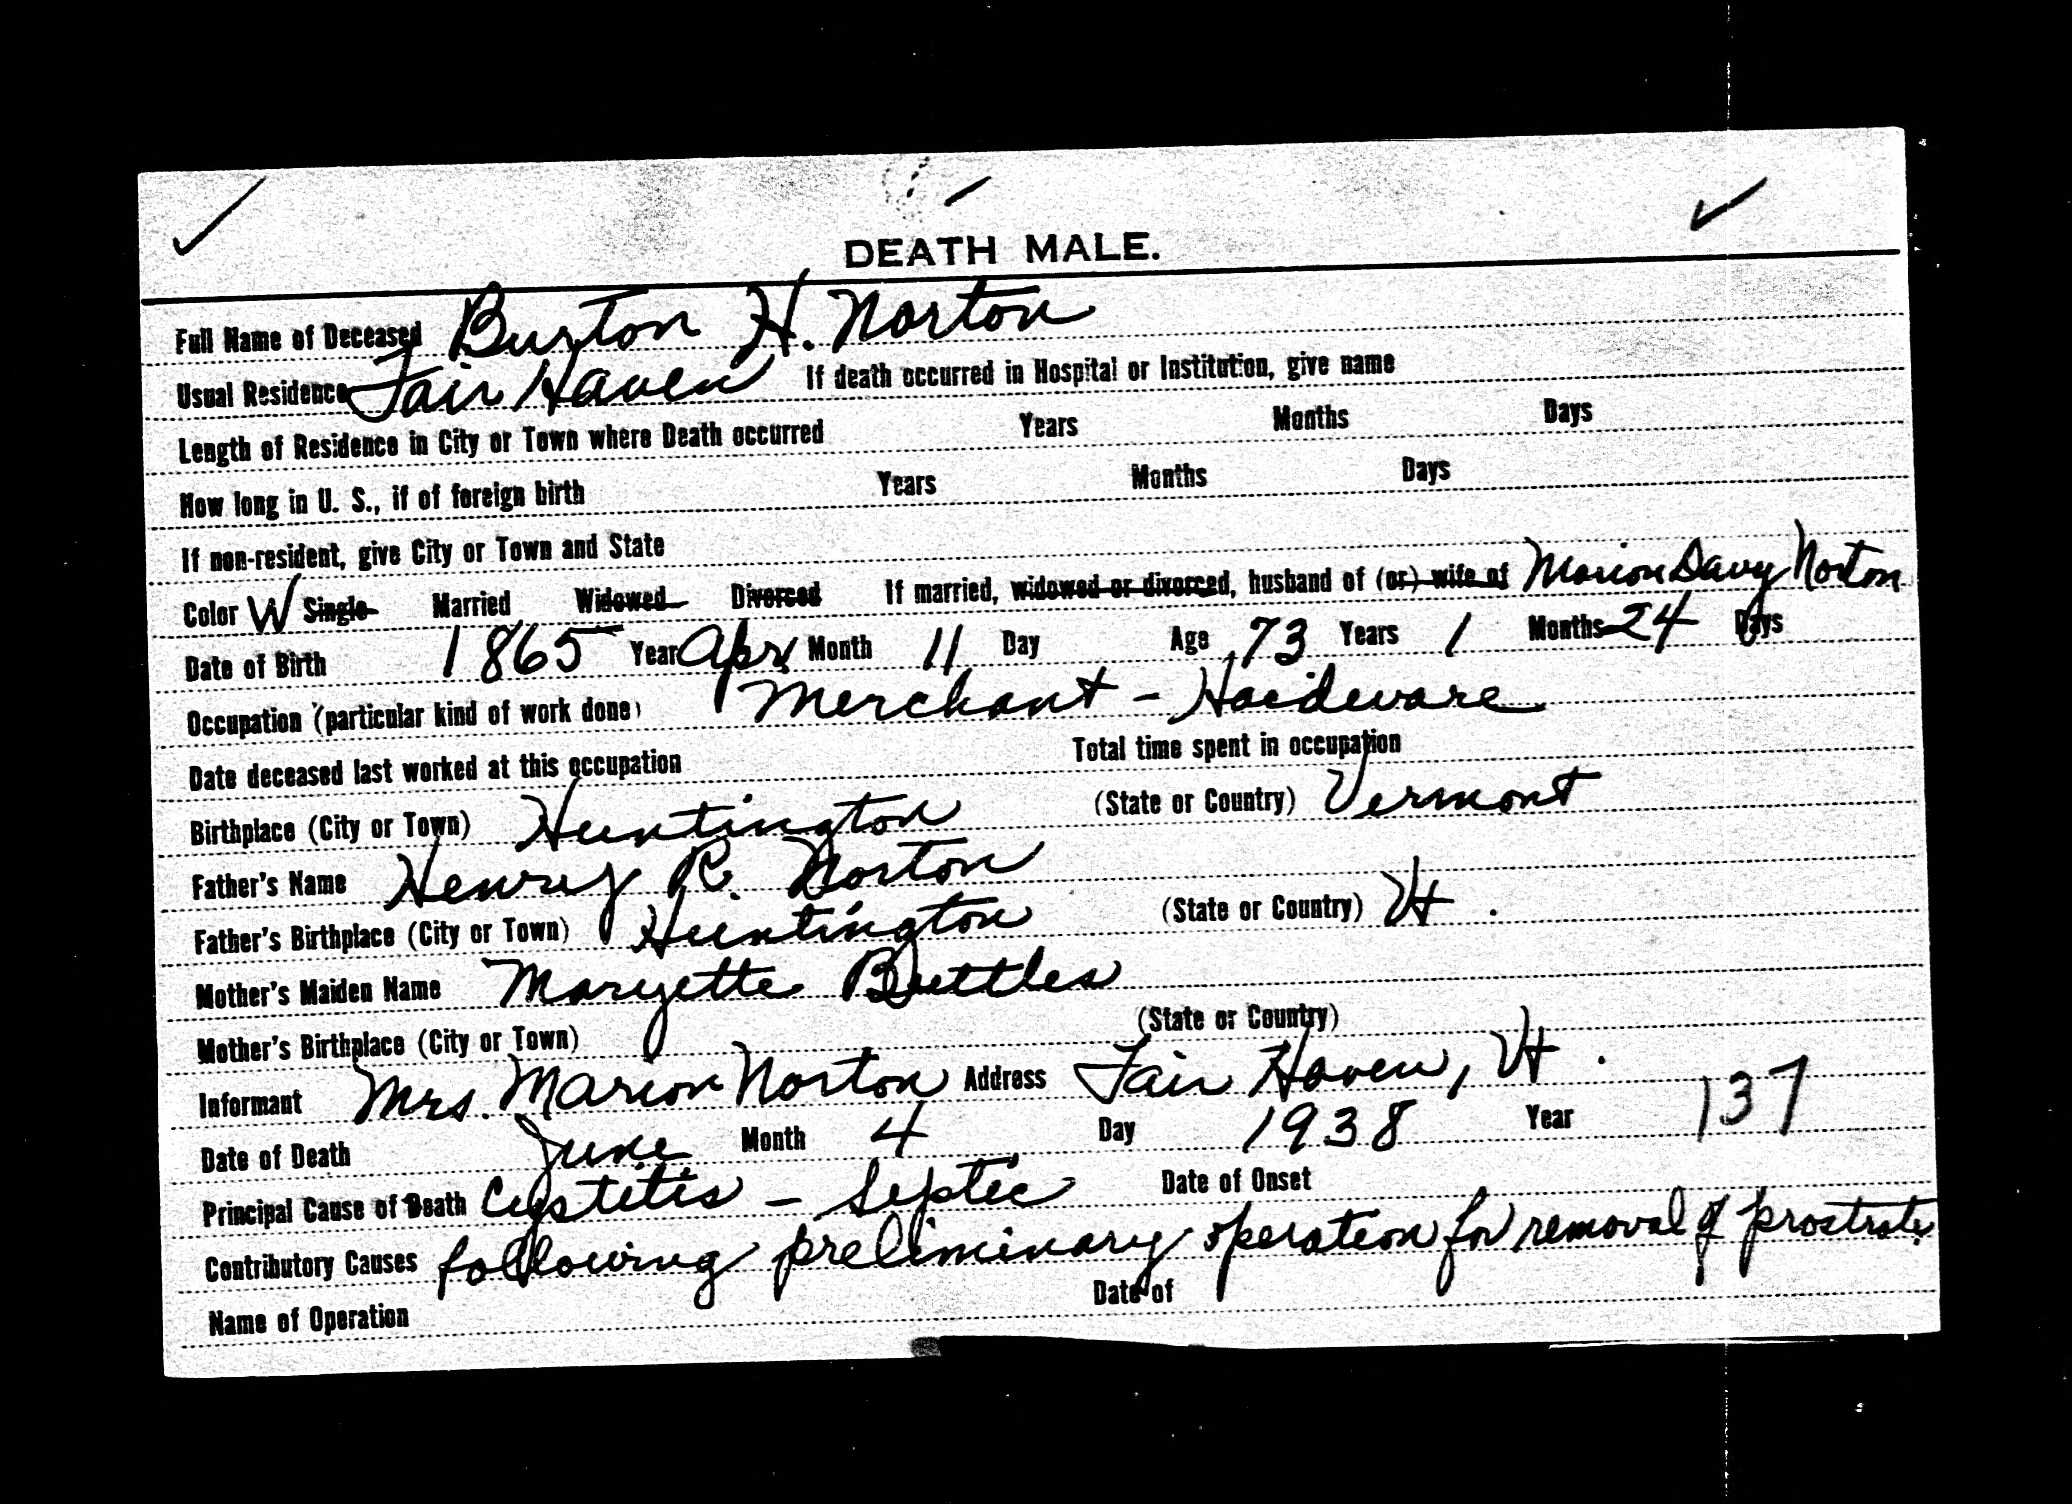 DEATH MALE.
Full Name of Deceased Burton H. Norton
Usual Residence Fair Haven If death occurred in Hospital or Institution, give name
Length of Residence in City or Town where Death occurred Years Months Days
How long in U. S., if of foreign birth Years Months Days
If non-resident, give City or Town and State
Color W Single Married Widowed Divorced If married, widowed or divorced, husband of (or) wife of Marion Davy Norton
Date of Birth 1865 Year Apr Month 11 Day Age 73 Years 1 Months 24 Days
Occupation (particular kind of work done) Merchant - Hardware
Date deceased last worked at this occupation Total time spent in occupation
Birthplace (City or Town) Huntington (State or Country) Vermont
Father's Name Henry R. Norton
Father's Birthplace (City or Town) Huntington (State or Country) Vt.
Mother's Maiden Name Maryette Buttles
Mother's Birthplace (City or Town) (State or Country)
Informant Mrs. Marion Norton Address Fair Haven, Vt.
Date of Death June Month 4 Day 1938 Year 137
Principal Cause of Death Cystitis - Septic Date of Onset
Contributory Causes following preliminary operation for removal of prostrate.
Name of Operation Date of